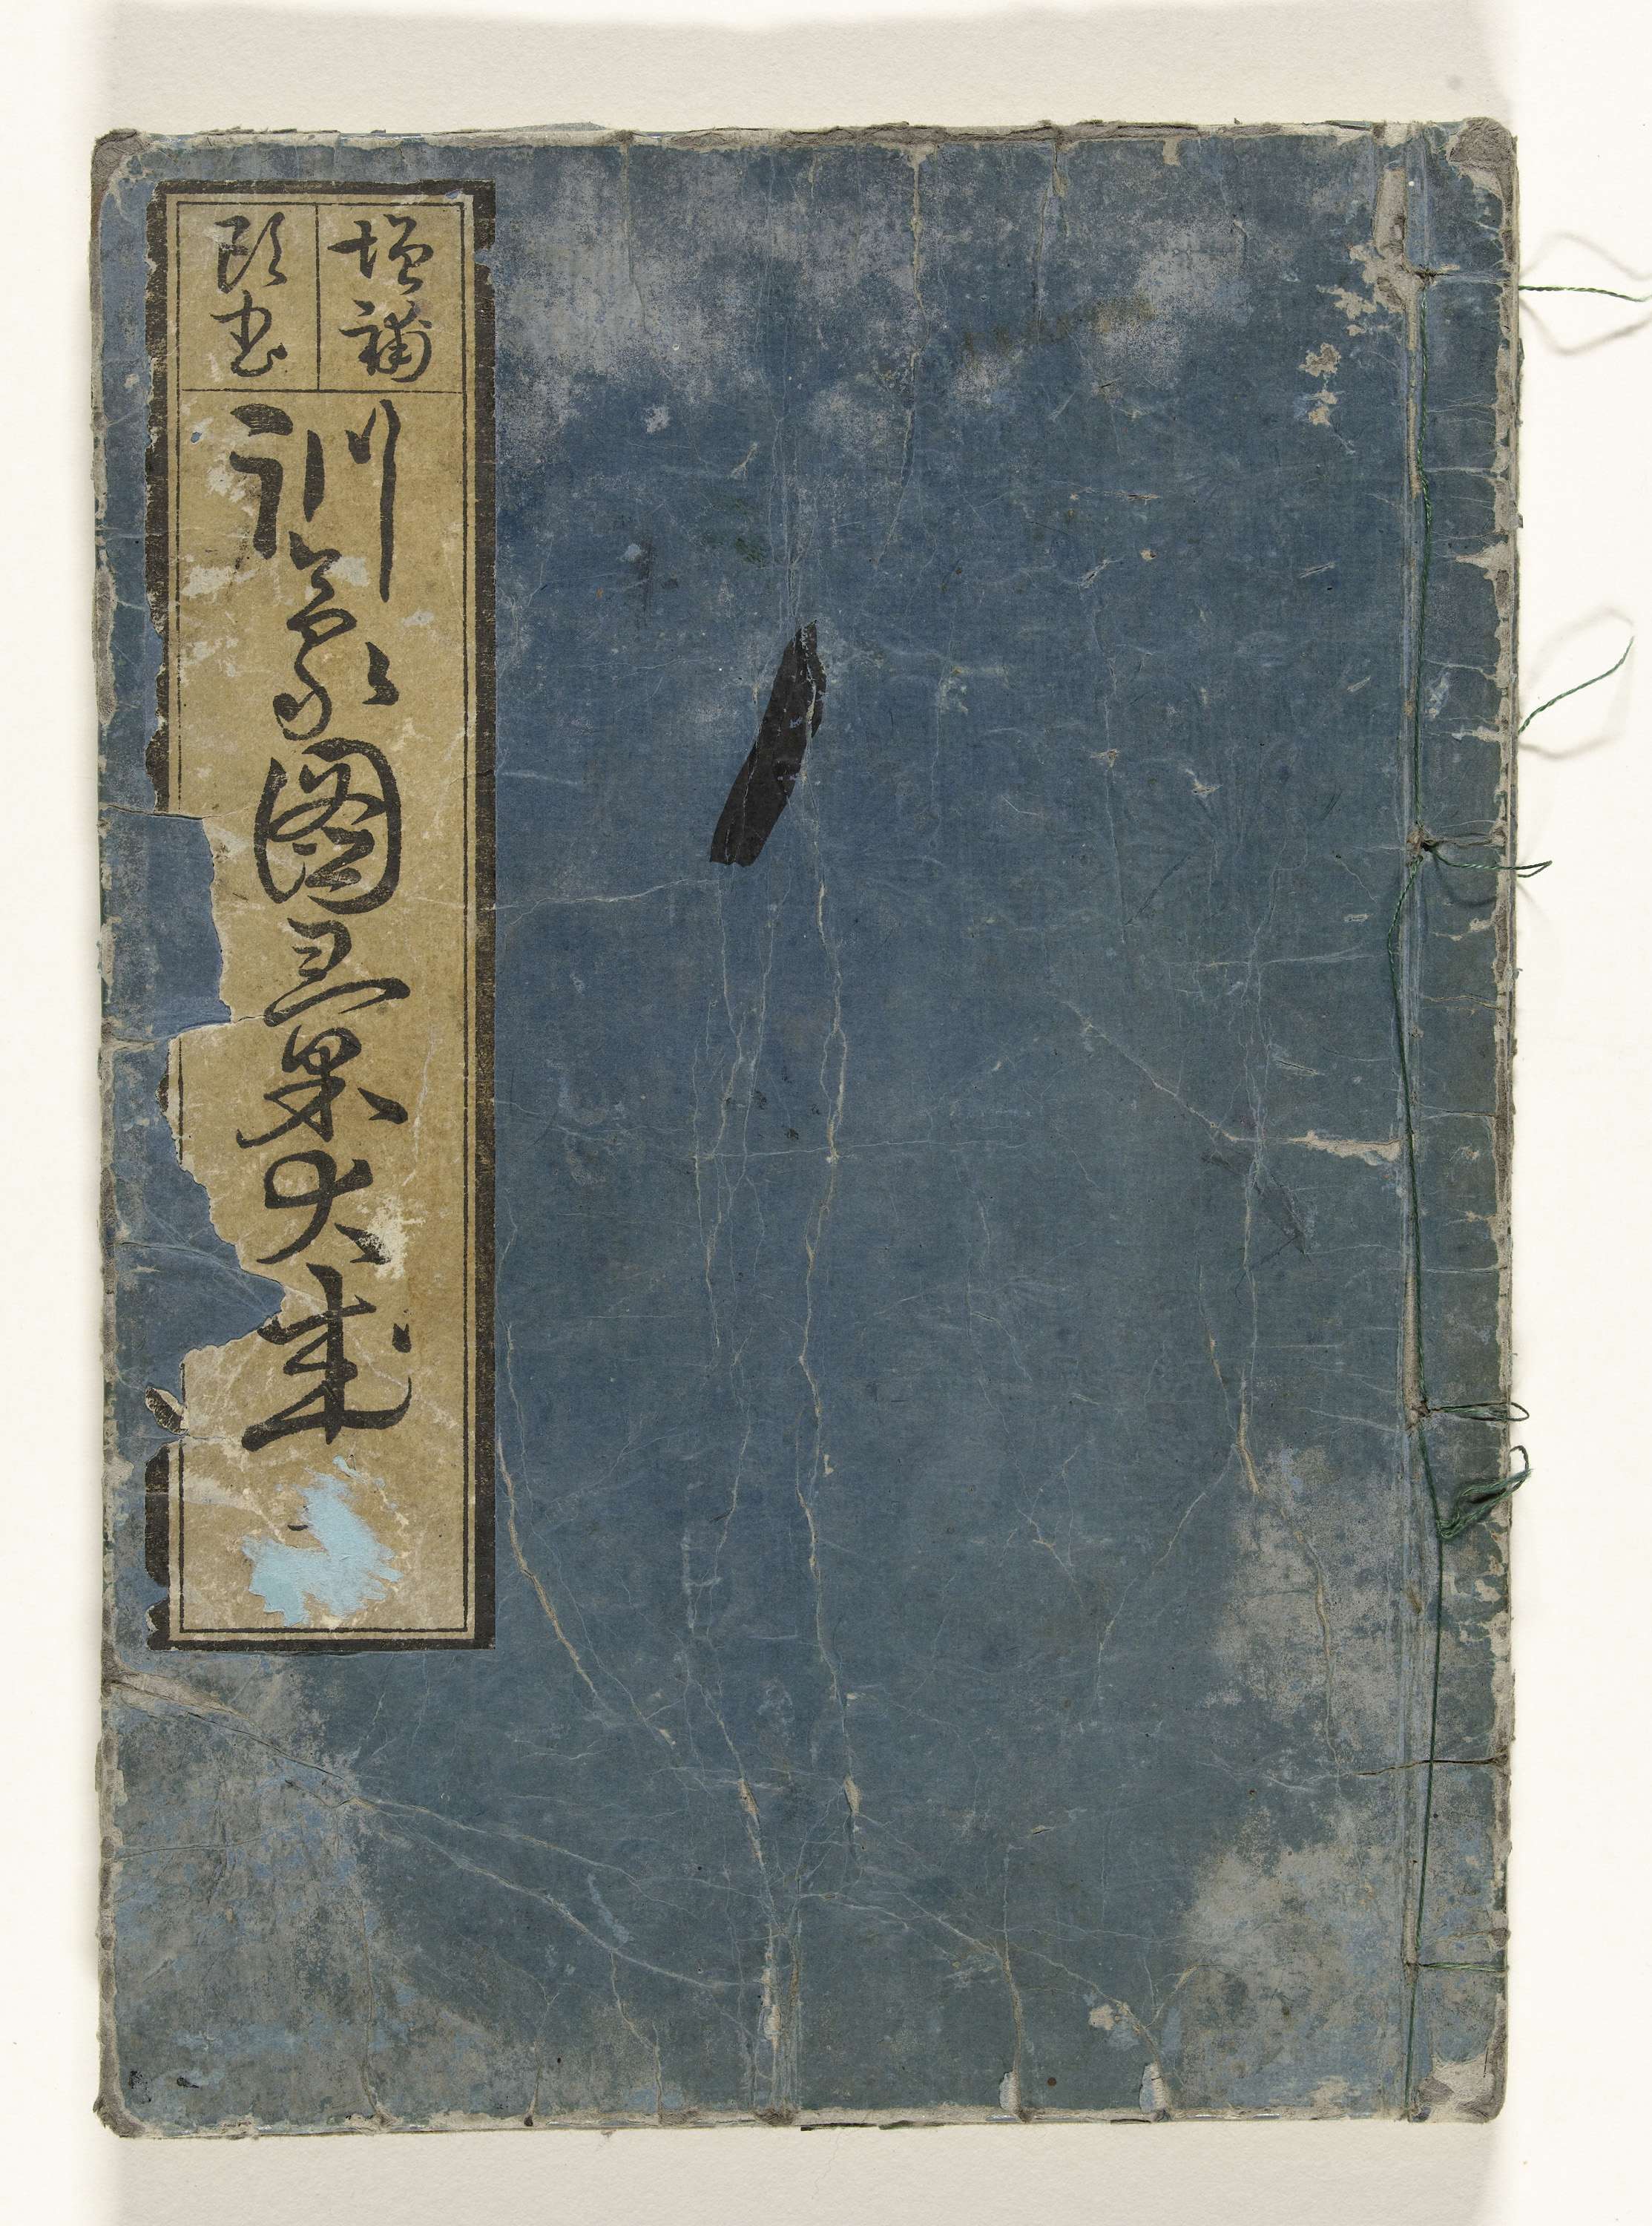 增補
頭書
訓蒙圖彙大成